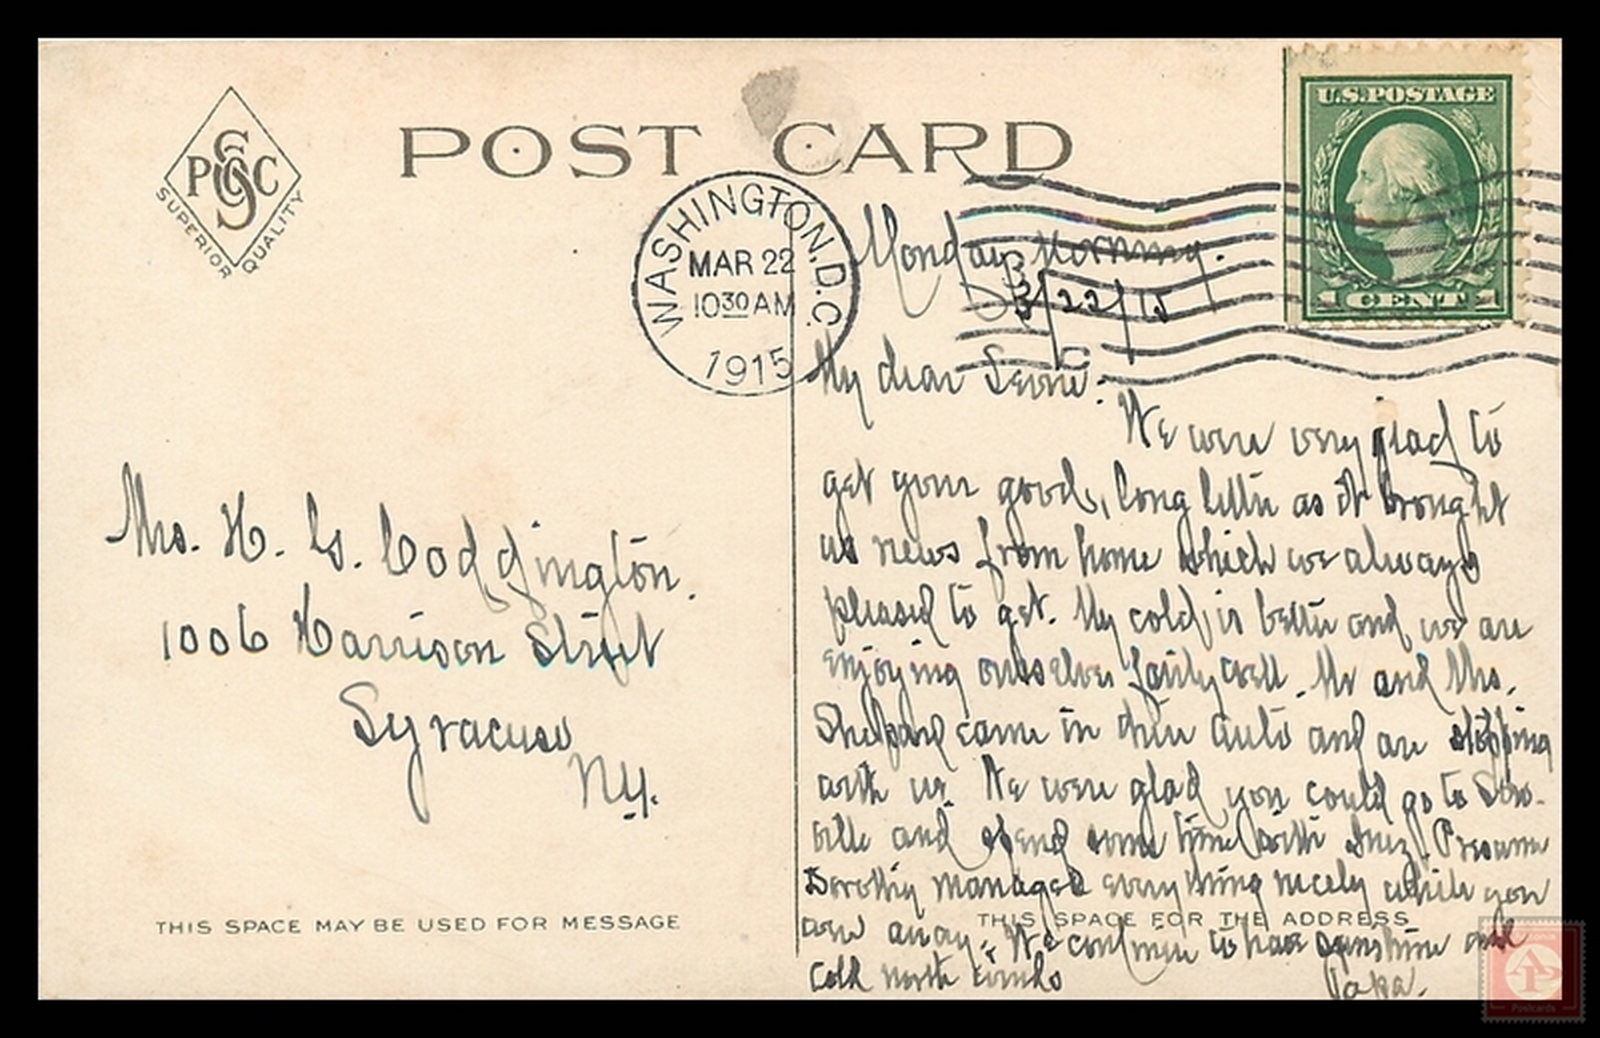 POST CARD
PGSC
SUPERIOR QUALITY
U.S. POSTAGE
1 CENT 1
WASHINGTON, D.C.
MAR 22
10 30 AM
1915
Monday Morning.
3/22/15
My dear
We were very glad to
get your good, long letter as it brought
us news from home which we always
pleased to get. My cold is better and we are
enjoying ourselves fairly well. Mr and Mrs.
Shepard came in their auto and are stopping
with us. We were glad you could go to
ville and spend some time with Inez. Presume
Dorothy managed everything nicely while you
were away. We continue to have sunshine and
cold north winds
Papa.
Mrs. H. G. Coddington.
1006 Harrison Street
Syracuse
N.Y.
THIS SPACE MAY BE USED FOR MESSAGE
THIS SPACE FOR THE ADDRESS
AP
Postcards